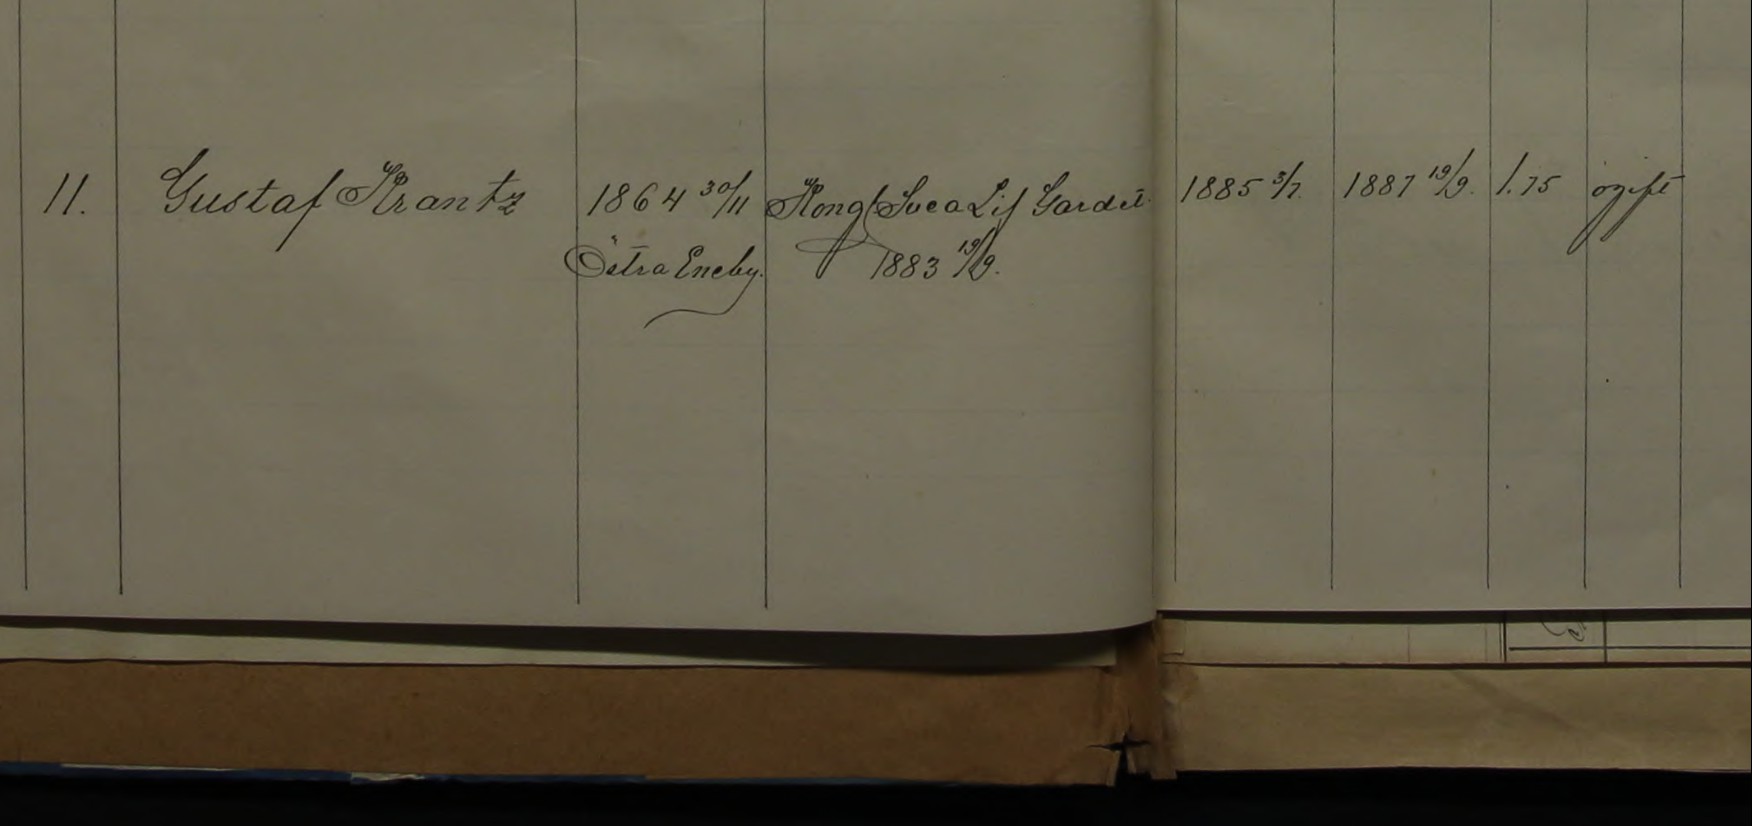 11. Gustaf Krantz 1864 30/11 Kongl Svea Lif Garde 1885 3/7. 1887 19/9. 1.75 ogift
Östra Eneby. 1883 19/9.